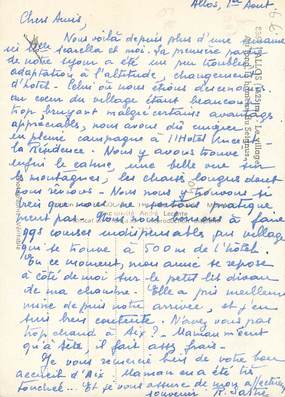 Allos, 1er Aout
Chers Amis,
Nous voilà depuis plus d'une semaine
ici Mlle Sarella et moi. La première partie
de notre séjour a été un peu troublée
adaptation à l'altitude, changement
d'hôtel. Celui où nous étions descendues
au coeur du village étant beaucoup
trop bruyant malgré certains avantages
appréciables, nous avons dû émigrer
en pleine campagne à l'Hôtel
La Résidence. Nous y avons trouvé
enfin le calme, une belle vue sur
les montagnes, les chaises longues dont
nous rêvions. Nous nous y trouvons si
bien que nous ne sortons pratique
ment pas. Nous nous bornons à faire
qqs courses indispensables au village
qui se trouve à 500 m de l'hôtel.
En ce moment, mon amie se repose
à côté de moi sur le petit lit divan
de ma chambre. Elle a pris meilleure
mine depuis notre arrivée, et j'en
suis bien contente. N'avez vous pas
trop chaud à Aix ? Maman m'écrit
qu'à Sète il fait assez frais.
Je vous remercie bien de votre bon
accueil d'Aix. Maman en a été très
touchée... Et je vous assure de mon affectueux
souvenir
ALLOS
Le village